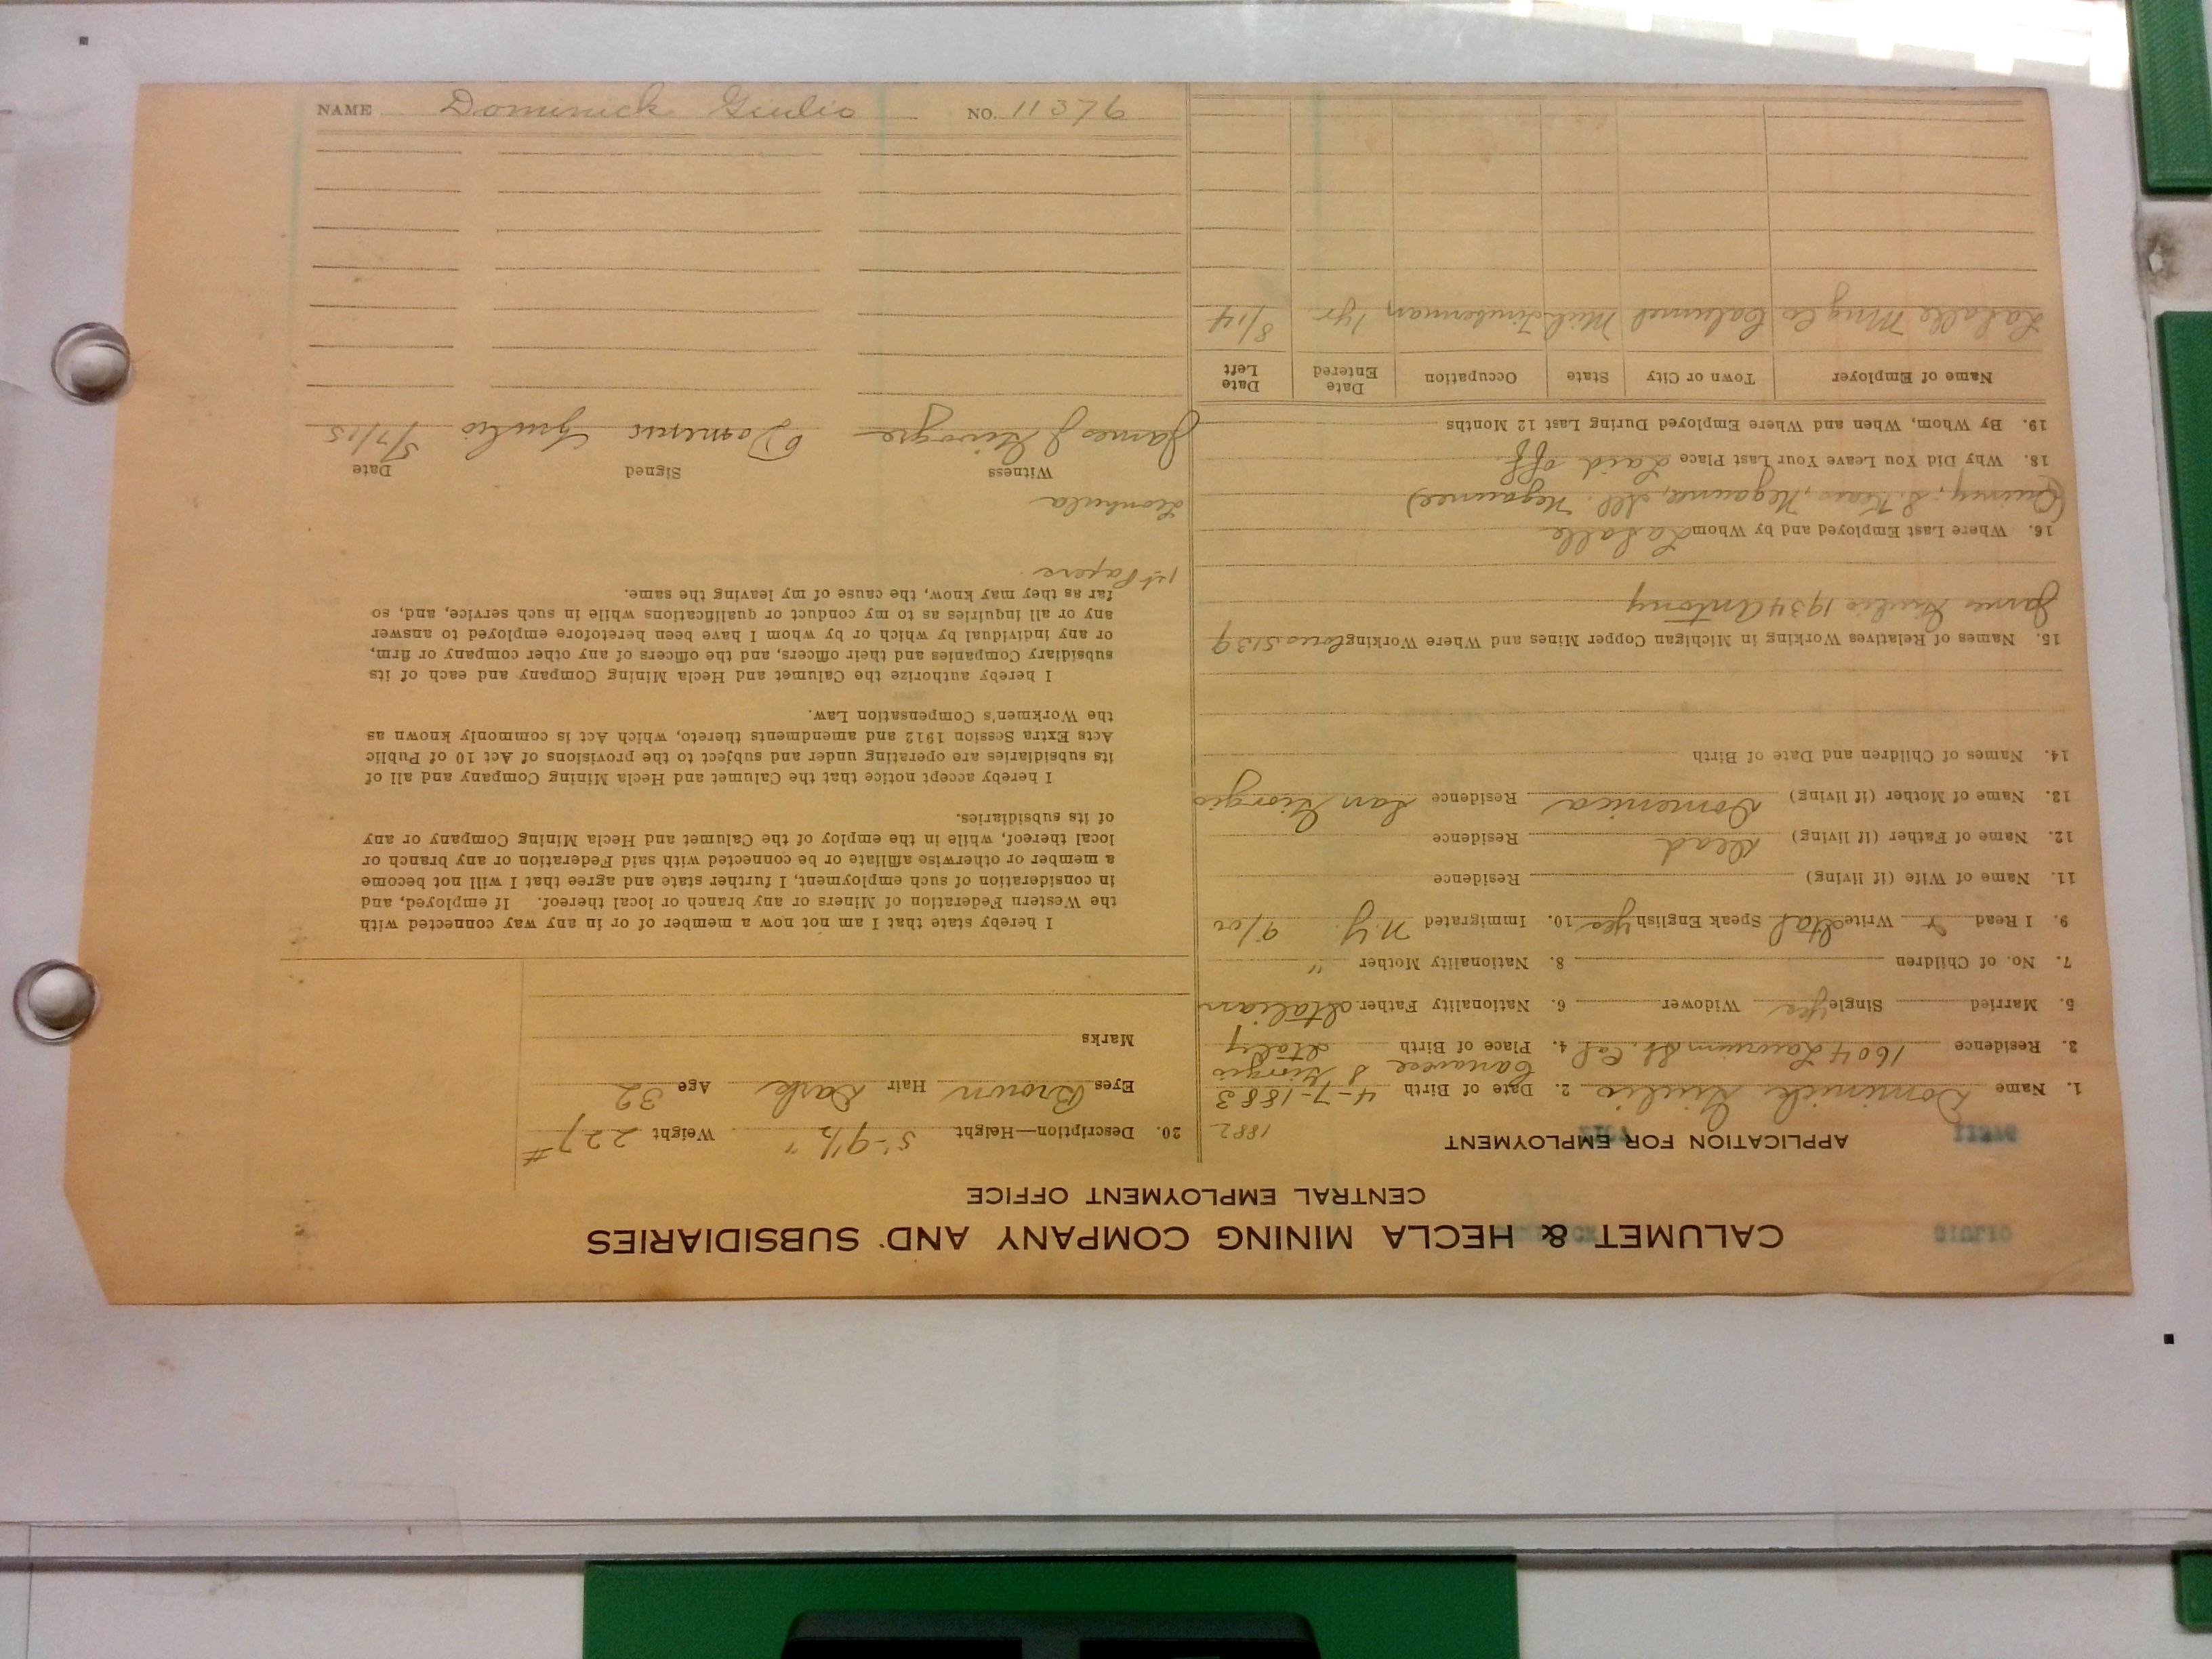 CALUMET & HECLA MINING COMPANY AND SUBSIDIARIES
CENTRAL EMPLOYMENT OFFICE
APPLICATION FOR EMPLOYMENT
1882
1. Name Dominick Giulio 2. Date of Birth 4-7-1883
Canavese S Giorgio
3. Residence 1604 Laurium St. Cal 4. Place of Birth Italy
5. Married Single Yes Widower 6. Nationality Father Italian
7. No. of Children 8. Nationality Mother "
9. I Read Y Write Ital Speak English yes 10. Immigrated N.Y. 9/00
11. Name of Wife (if living) Residence
12. Name of Father (if living) Dead Residence
13. Name of Mother (if living) Domenica Residence San Giorgio
14. Names of Children and Date of Birth
15. Names of Relatives Working in Michigan Copper Mines and Where Working Louis 5139
James Giulio 1934 Antony
16. Where Last Employed and by Whom LaSalle
(Quincy, S. Kears, Negaunee, Ill. Negaunee)
18. Why Did You Leave Your Last Place Laid off.
19. By Whom, When and Where Employed During Last 12 Months
Name of Employer Town or City State Occupation Date Entered Date Left
LaSalle Mng Co Calumet Mich Timberman 1 yr. 8/14
20. Description—Height 5'-9½" Weight 227#
Eyes Brown Hair Dark Age 32
Marks
I hereby state that I am not now a member of or in any way connected with
the Western Federation of Miners or any branch or local thereof. If employed, and
in consideration of such employment, I further state and agree that I will not become
a member or otherwise affiliate or be connected with said Federation or any branch or
local thereof, while in the employ of the Calumet and Hecla Mining Company or any
of its subsidiaries.
I hereby accept notice that the Calumet and Hecla Mining Company and all of
its subsidiaries are operating under and subject to the provisions of Act 10 of Public
Acts Extra Session 1912 and amendments thereto, which Act is commonly known as
the Workmen's Compensation Law.
I hereby authorize the Calumet and Hecla Mining Company and each of its
subsidiary Companies and their officers, and the officers of any other company or firm,
or any individual by which or by whom I have been heretofore employed to answer
any or all inquiries as to my conduct or qualifications while in such service, and, so
far as they may know, the cause of my leaving the same.
1st Papers
Witness Signed Date
James J Dominic Giulio 5/7/15
NAME Dominick Giulio NO. 11376